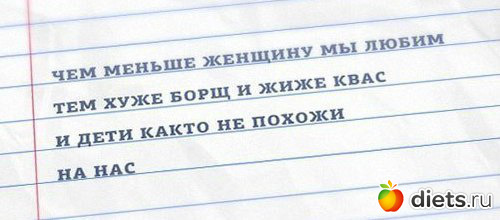 ЧЕМ МЕНЬШЕ ЖЕНЩИНУ МЫ ЛЮБИМ
ТЕМ ХУЖЕ БОРЩ И ЖИЖЕ КВАС
И ДЕТИ КАКТО НЕ ПОХОЖИ
НА НАС
diets.ru